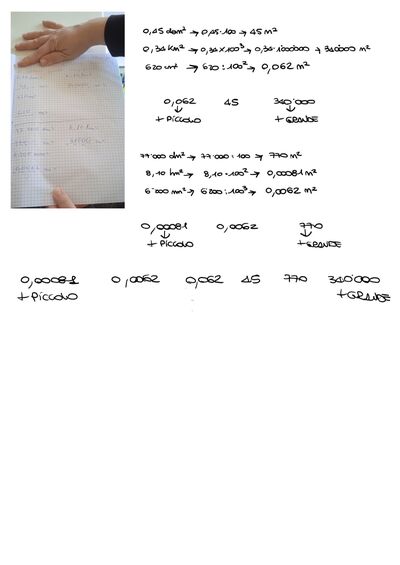 0,45 dam² → 0,45·100 → 45 m²
0,34 Km² → 0,34×100³ → 0,34·1000000 → 340'000 m²
620 cm² → 620:100² → 0,062 m²
0,062 45 340'000
↓ ↓
+ PICCOLO + GRANDE
77'000 dm² → 77'000:100 → 770 m²
8,10 hm² → 8,10·100² → 0,00081 m²
6'200 mm² → 6200:100³ → 0,0062 m²
0,00081 0,0062 770
↓ ↓
+ PICCOLO + GRANDE
0,00081 0,0062 0,062 45 770 340'000
+ PICCOLO + GRANDE